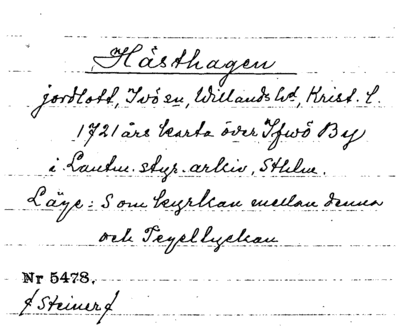 Hästhagen
jordlott, Ivö sn, Willands hd, Krist. l.
1721 års karta över Ifwö By
i Lantm. styr. arkiv, Sthlm.
Läge: S om kyrkan mellan denna
och Tegellyckan
Nr 5478.
/Steiner/